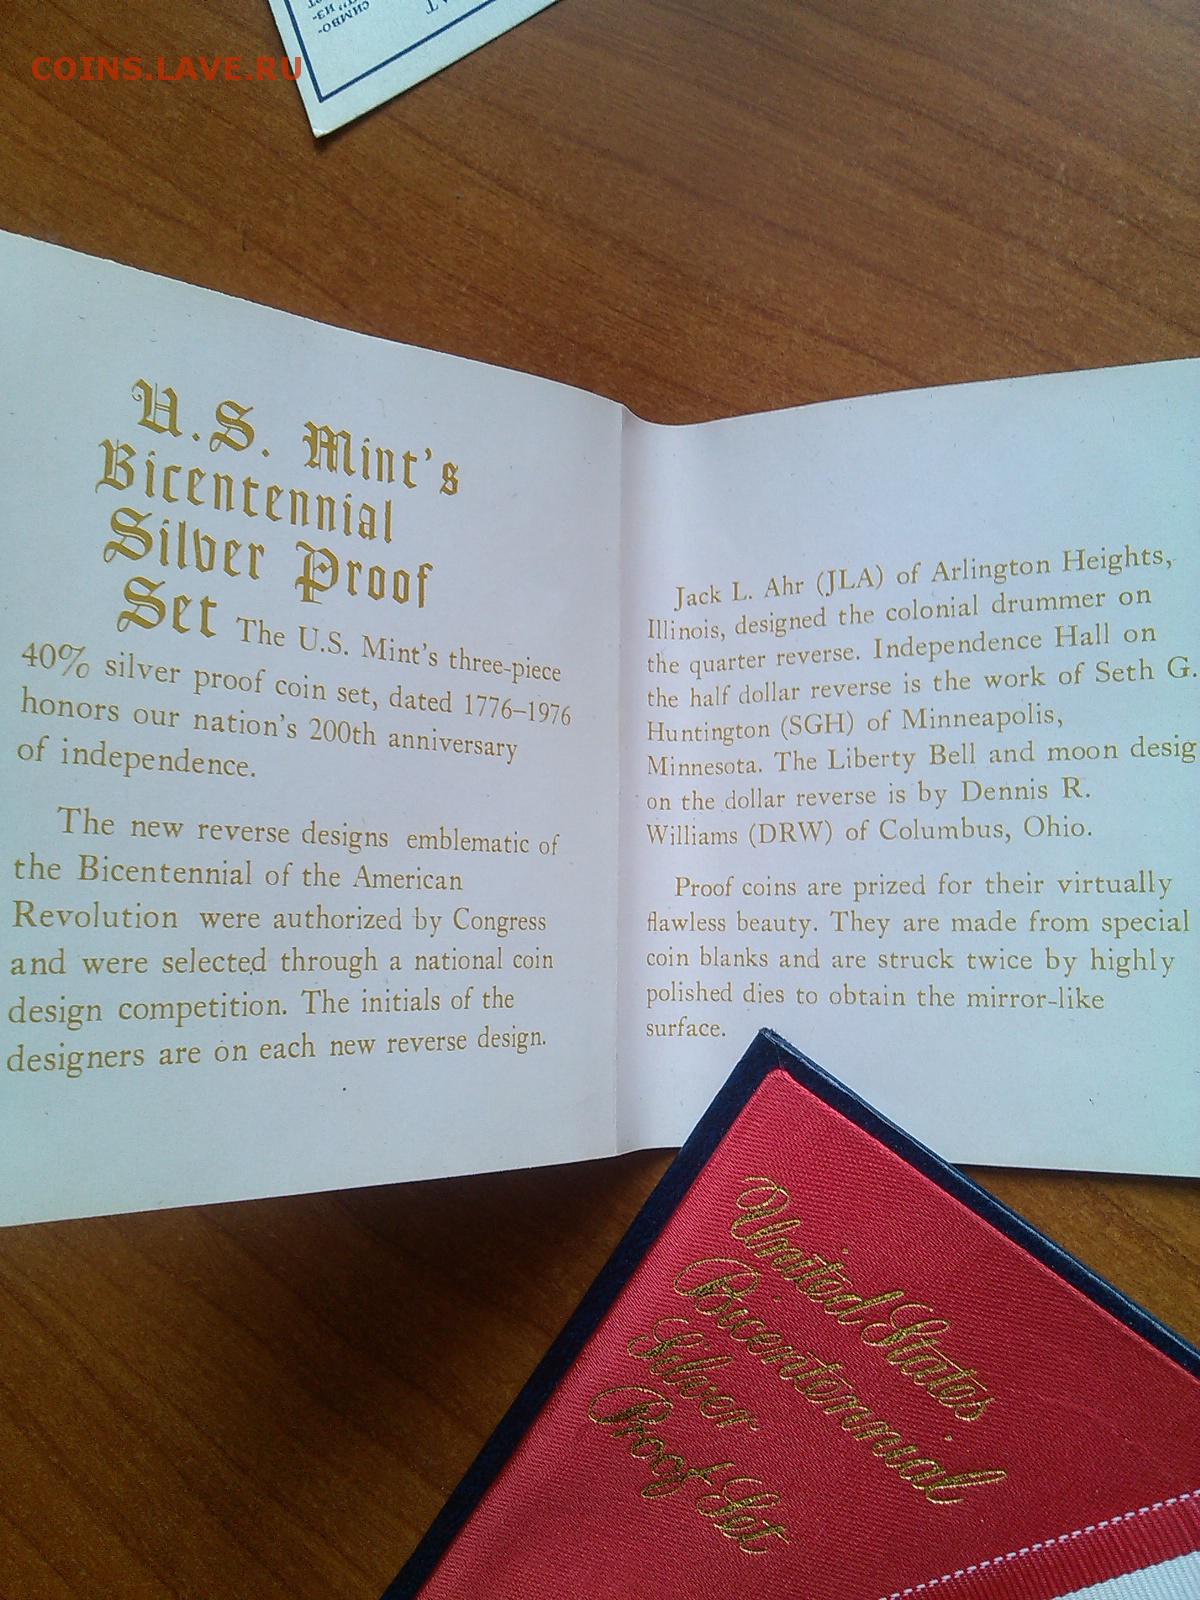 COINS.LAVE.RU
СИМВО-
U.S. Mint's
Bicentennial
Silver Proof
Set The U.S. Mint's three-piece
40% silver proof coin set, dated 1776–1976
honors our nation's 200th anniversary
of independence.
The new reverse designs emblematic of
the Bicentennial of the American
Revolution were authorized by Congress
and were selected through a national coin
design competition. The initials of the
designers are on each new reverse design.
Jack L. Ahr (JLA) of Arlington Heights,
Illinois, designed the colonial drummer on
the quarter reverse. Independence Hall on
the half dollar reverse is the work of Seth G.
Huntington (SGH) of Minneapolis,
Minnesota. The Liberty Bell and moon desig
on the dollar reverse is by Dennis R.
Williams (DRW) of Columbus, Ohio.
Proof coins are prized for their virtually
flawless beauty. They are made from special
coin blanks and are struck twice by highly
polished dies to obtain the mirror-like
surface.
United States
Bicentennial
Silver
Proof Set